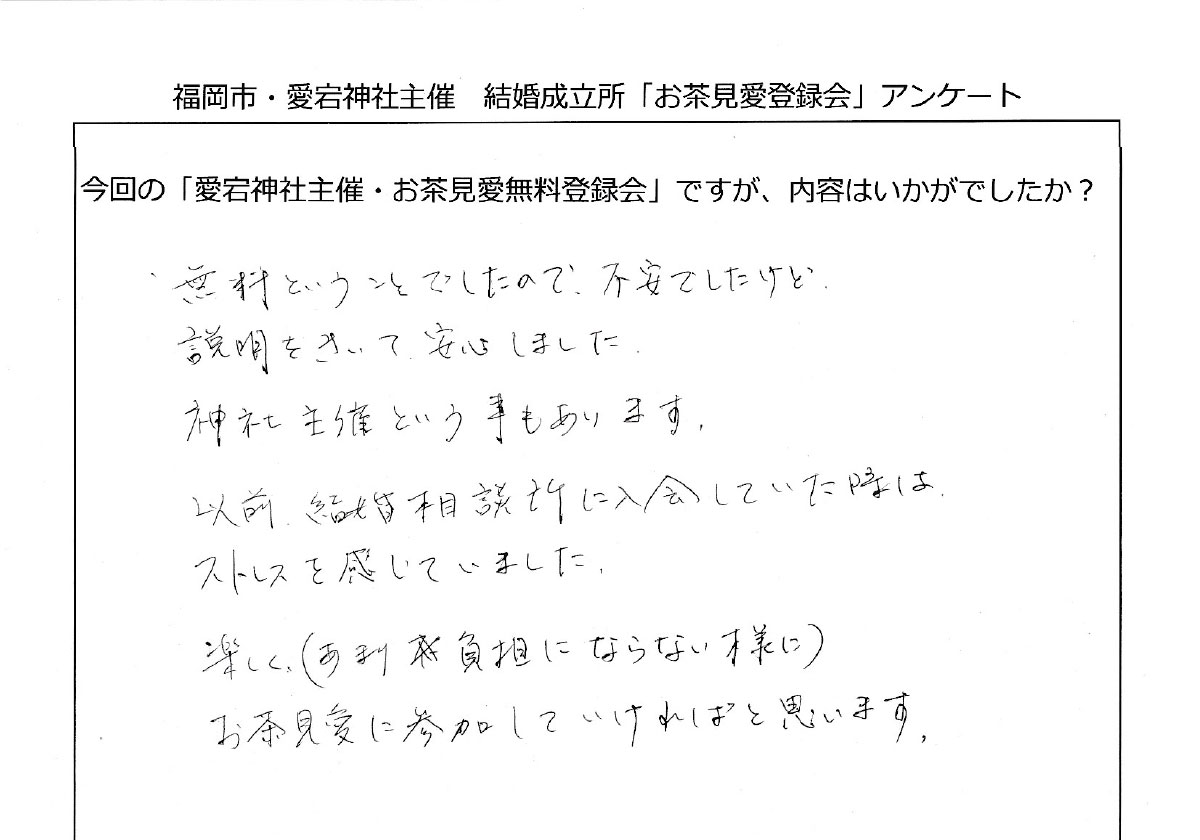 福岡市・愛宕神社主催　結婚成立所「お茶見愛登録会」アンケート
今回の「愛宕神社主催・お茶見愛無料登録会」ですが、内容はいかがでしたか？
無料ということでしたので、不安でしたけど、
説明をきいて、安心しました。
神社主催という事もあります。
以前、結婚相談所に入会していた時は、
ストレスを感じていました。
楽しく、(あまり 負担にならない様に)
お茶見愛に参加していければと思います。